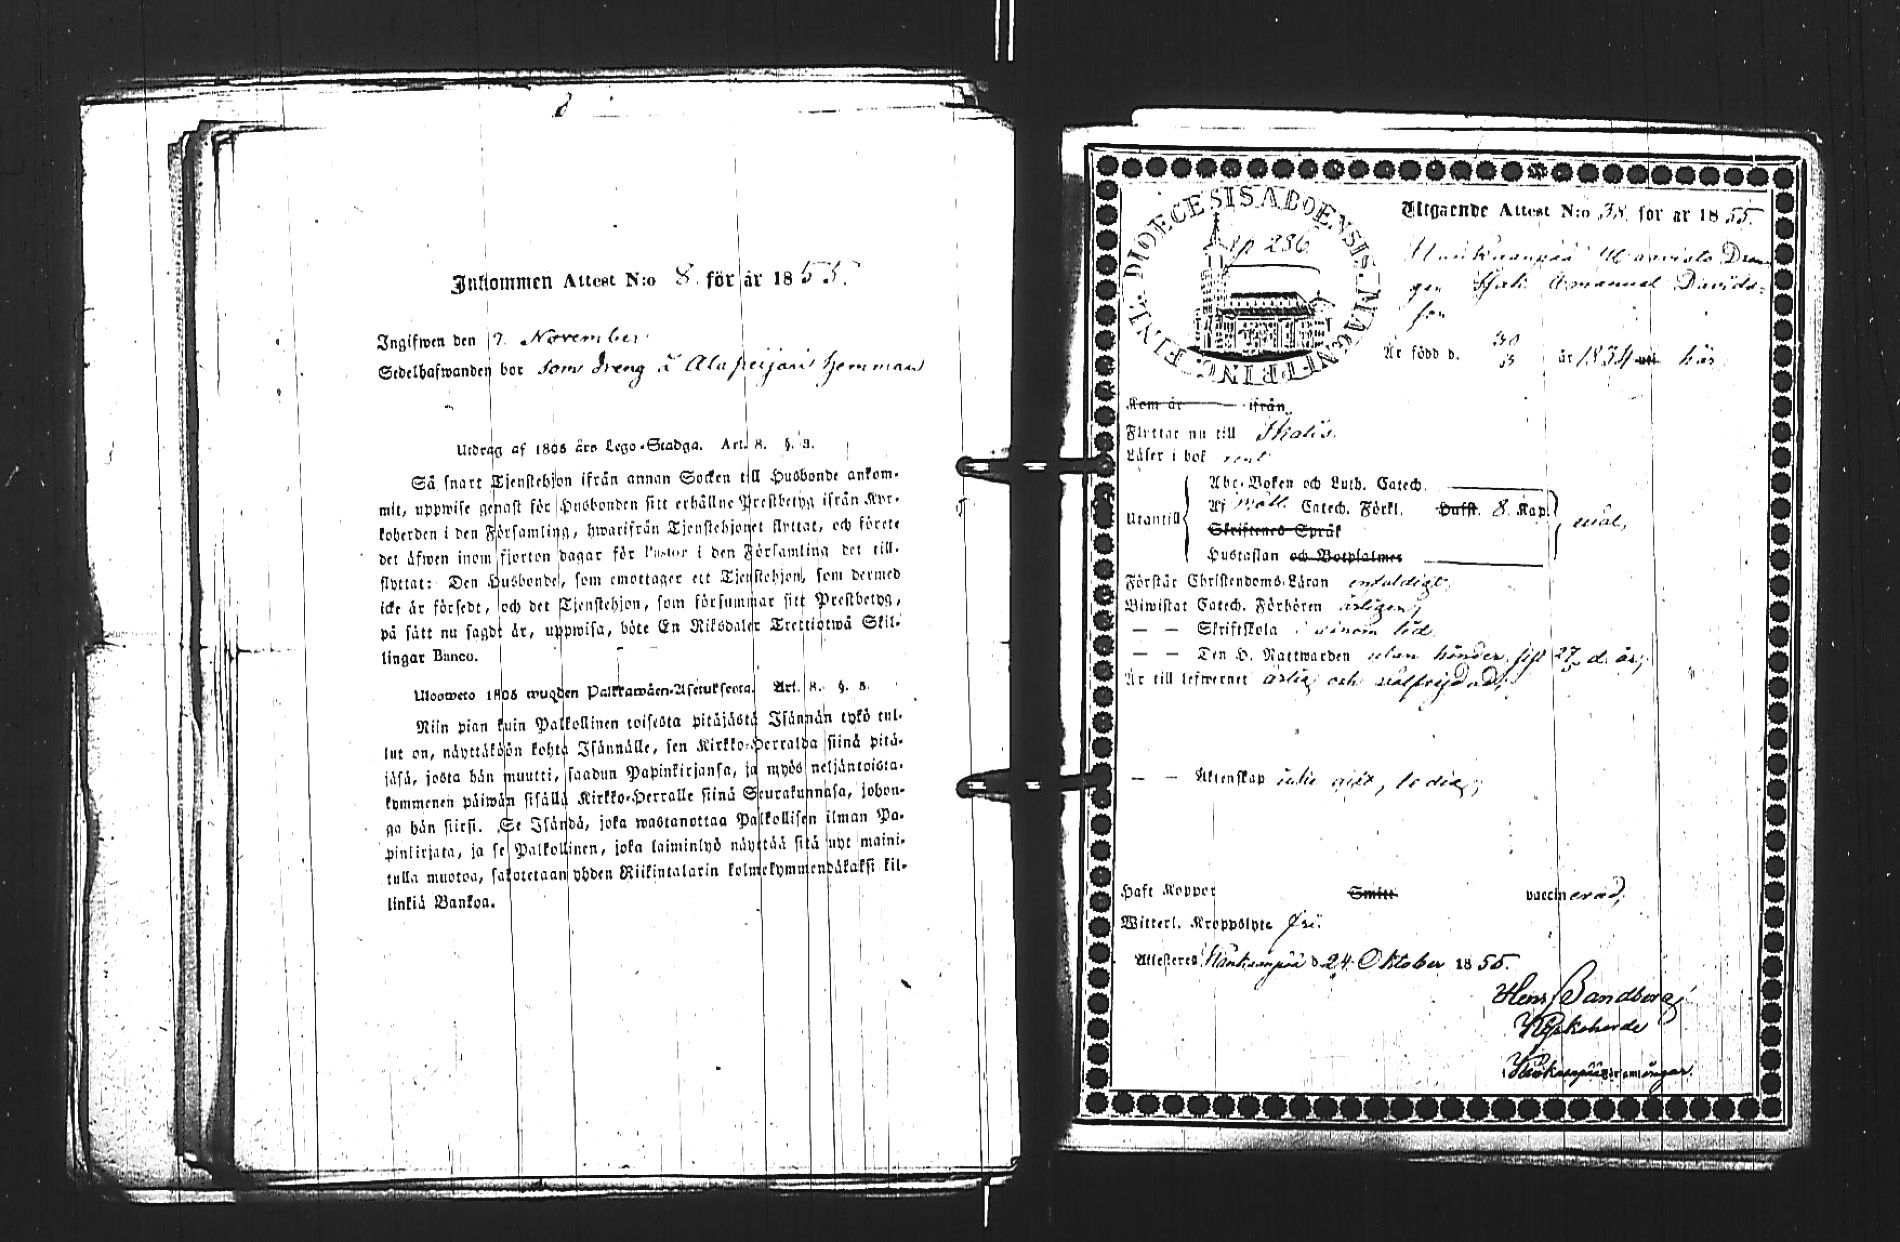 8
Inkommen Attest N:o 8. för år 1855.
Ingifwen den 7. November
Sedelhafwanden bor som dreng å Alapeijari hemman
Utdrag af 1805 års Lego-Stadga. Art. 8. §. 3.
Så snart Tjenstehjon ifrån annan Socken till Husbonde ankom-
mit, uppwise genast för Husbonden sitt erhållne Prestbetyg ifrån Kyr-
koherden i den Församling, hwarifrån Tjenstehjonet flyttat, och förete
det äfwen inom fjorton dagar för Pastor i den Församling det till-
flyttat: Den Husbonde, som emottager ett Tjenstehjon, som dermed
icke är försedt, och det Tjenstehjon, som försummar sitt Prestbetyg,
på sätt nu sagdt är, uppwisa, böte En Riksdaler Trettiotwå Skil-
lingar Banco.
Ulosweto 1805 wuoden Palkkawäen-Asetuksesta. Art. 8. §. 3.
Niin pian kuin Palkollinen toisesta pitäjästä Isännän tykö tul-
lut on, näyttäköön kohta Isännälle, sen Kirkko-Herralda siinä pitä-
jäsä, josta hän muutti, saadun Papinkirjansa, ja myös neljäntoista-
kymmenen päiwän sisällä Kirkko-Herralle siinä Seurakunnasa, johon-
ga hän siirsi. Se Isändä, joka wastanottaa Palkollisen ilman Pa-
pinkirjata, ja se Palkollinen, joka laiminlyö näyttää sitä nyt maini-
tulla muotoa, sakotetaan yhden Riikintalarin kolmekymmendäkaksi kil-
linkiä Bankoa.
DIOECESIS ABOENSIS. MAGNI PRINC. FINL.
p 286
Utgaende Attest N:o 38. for ar 1855.
Honkaanpää Dren-
gen Isak Emanuel Davids-
son
Är född d. 30/3 år 1834 här
Kom år ifrån
Flyttar nu till Ikalis.
Läser i bok rent
Utantill
Abc-Boken och Luth. Catech.
Af Catech. Förkl. Hafft. 8. Kap.
Skriftenes Språk
Hustaflan och Botpsalmer
wäl,
Förstår Christendoms-Läran enfaldigt,
Biwistat Catech. Förhören årligen,
— — Skriftskola i
— — Den H. Nattwarden utan hinder, sist d. år,
Är till lefwernet ärlig och wälfrejdad,
— — Äktenskap icke gift, ledig,
Haft Koppor Smitt vaccinerad,
Witterl. Kroppslyte fri.
Attesteres Honkanpää d. 24. Oktober 1855.
Henr Sandberg
Kyrkoherde